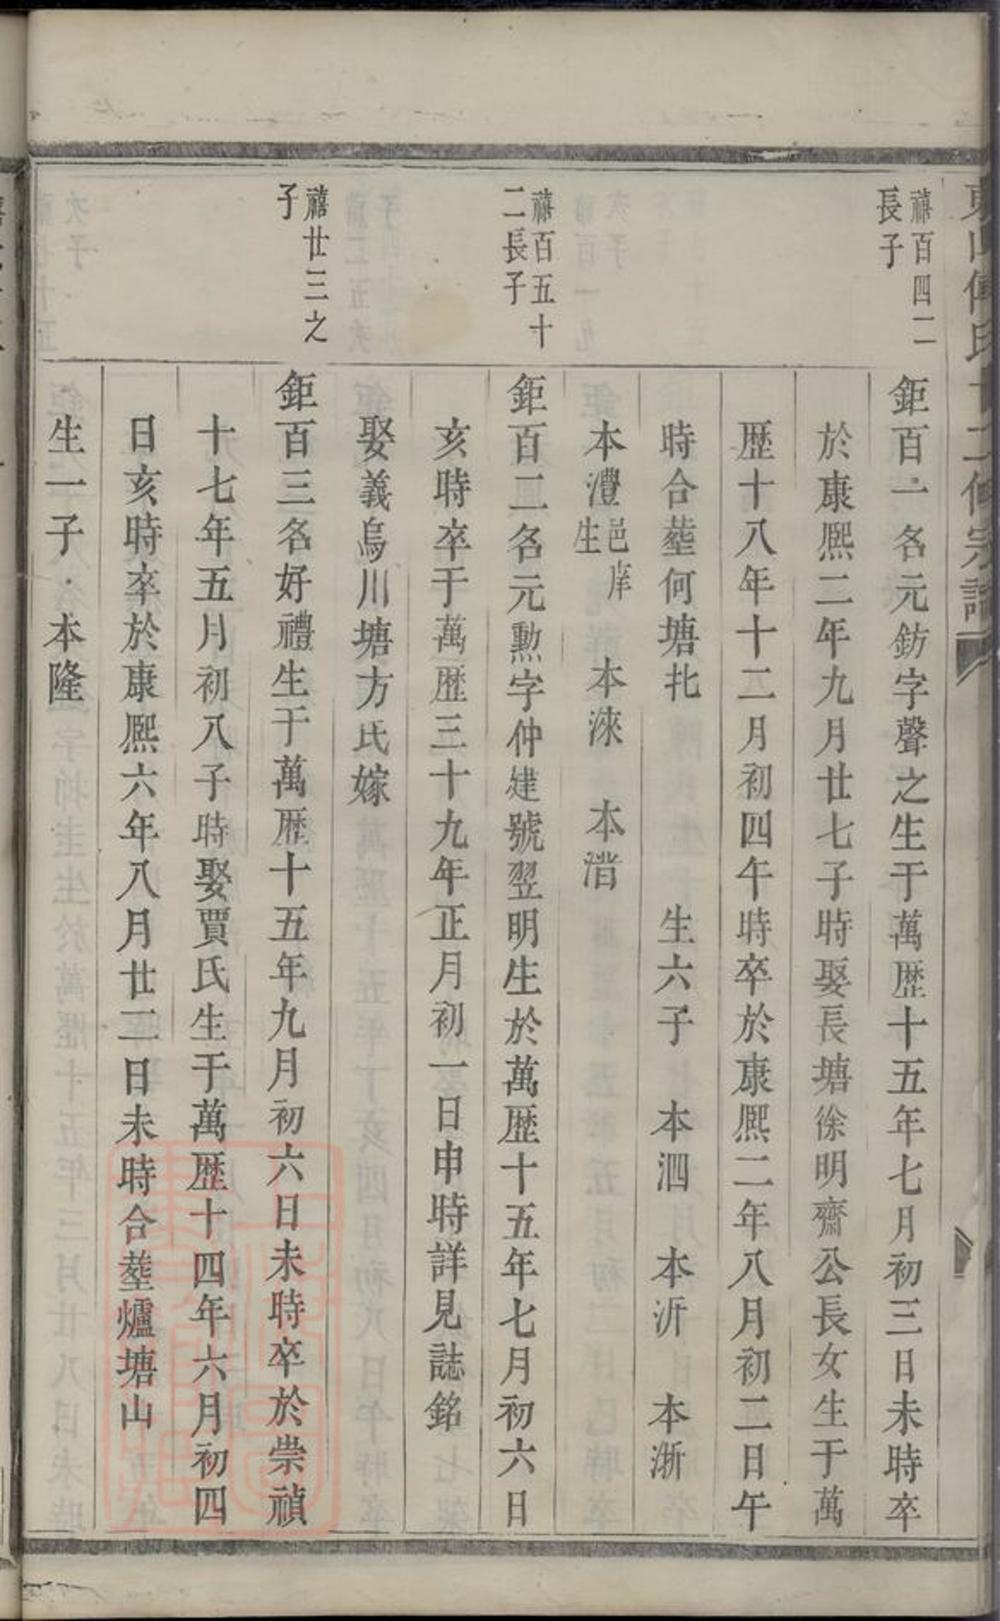 禧百四二
長子
鉅百一名元鈁字聲之生于萬歷十五年七月初三日未時卒
於康熙二年九月廿七子時娶長塘徐明齋公長女生于萬
歷十八年十二月初四午時卒於康熙二年八月初二日午
時合塟何塘圠　生六子　本泗　本沂　本漸
本灃邑庠生　本淶　本湝
禧百五十
二長子
鉅百二名元勳字仲建號翌明生於萬歷十五年七月初六日
亥時卒于萬歷三十九年正月初一日申時詳見誌銘
娶義烏川塘方氏嫁
禧廿三之
子
鉅百三名好禮生于萬歷十五年九月初六日未時卒於崇禎
十七年五月初八子時娶賈氏生于萬歷十四年六月初四
日亥時卒於康熙六年八月廿二日未時合塟爐塘山
生一子　本隆